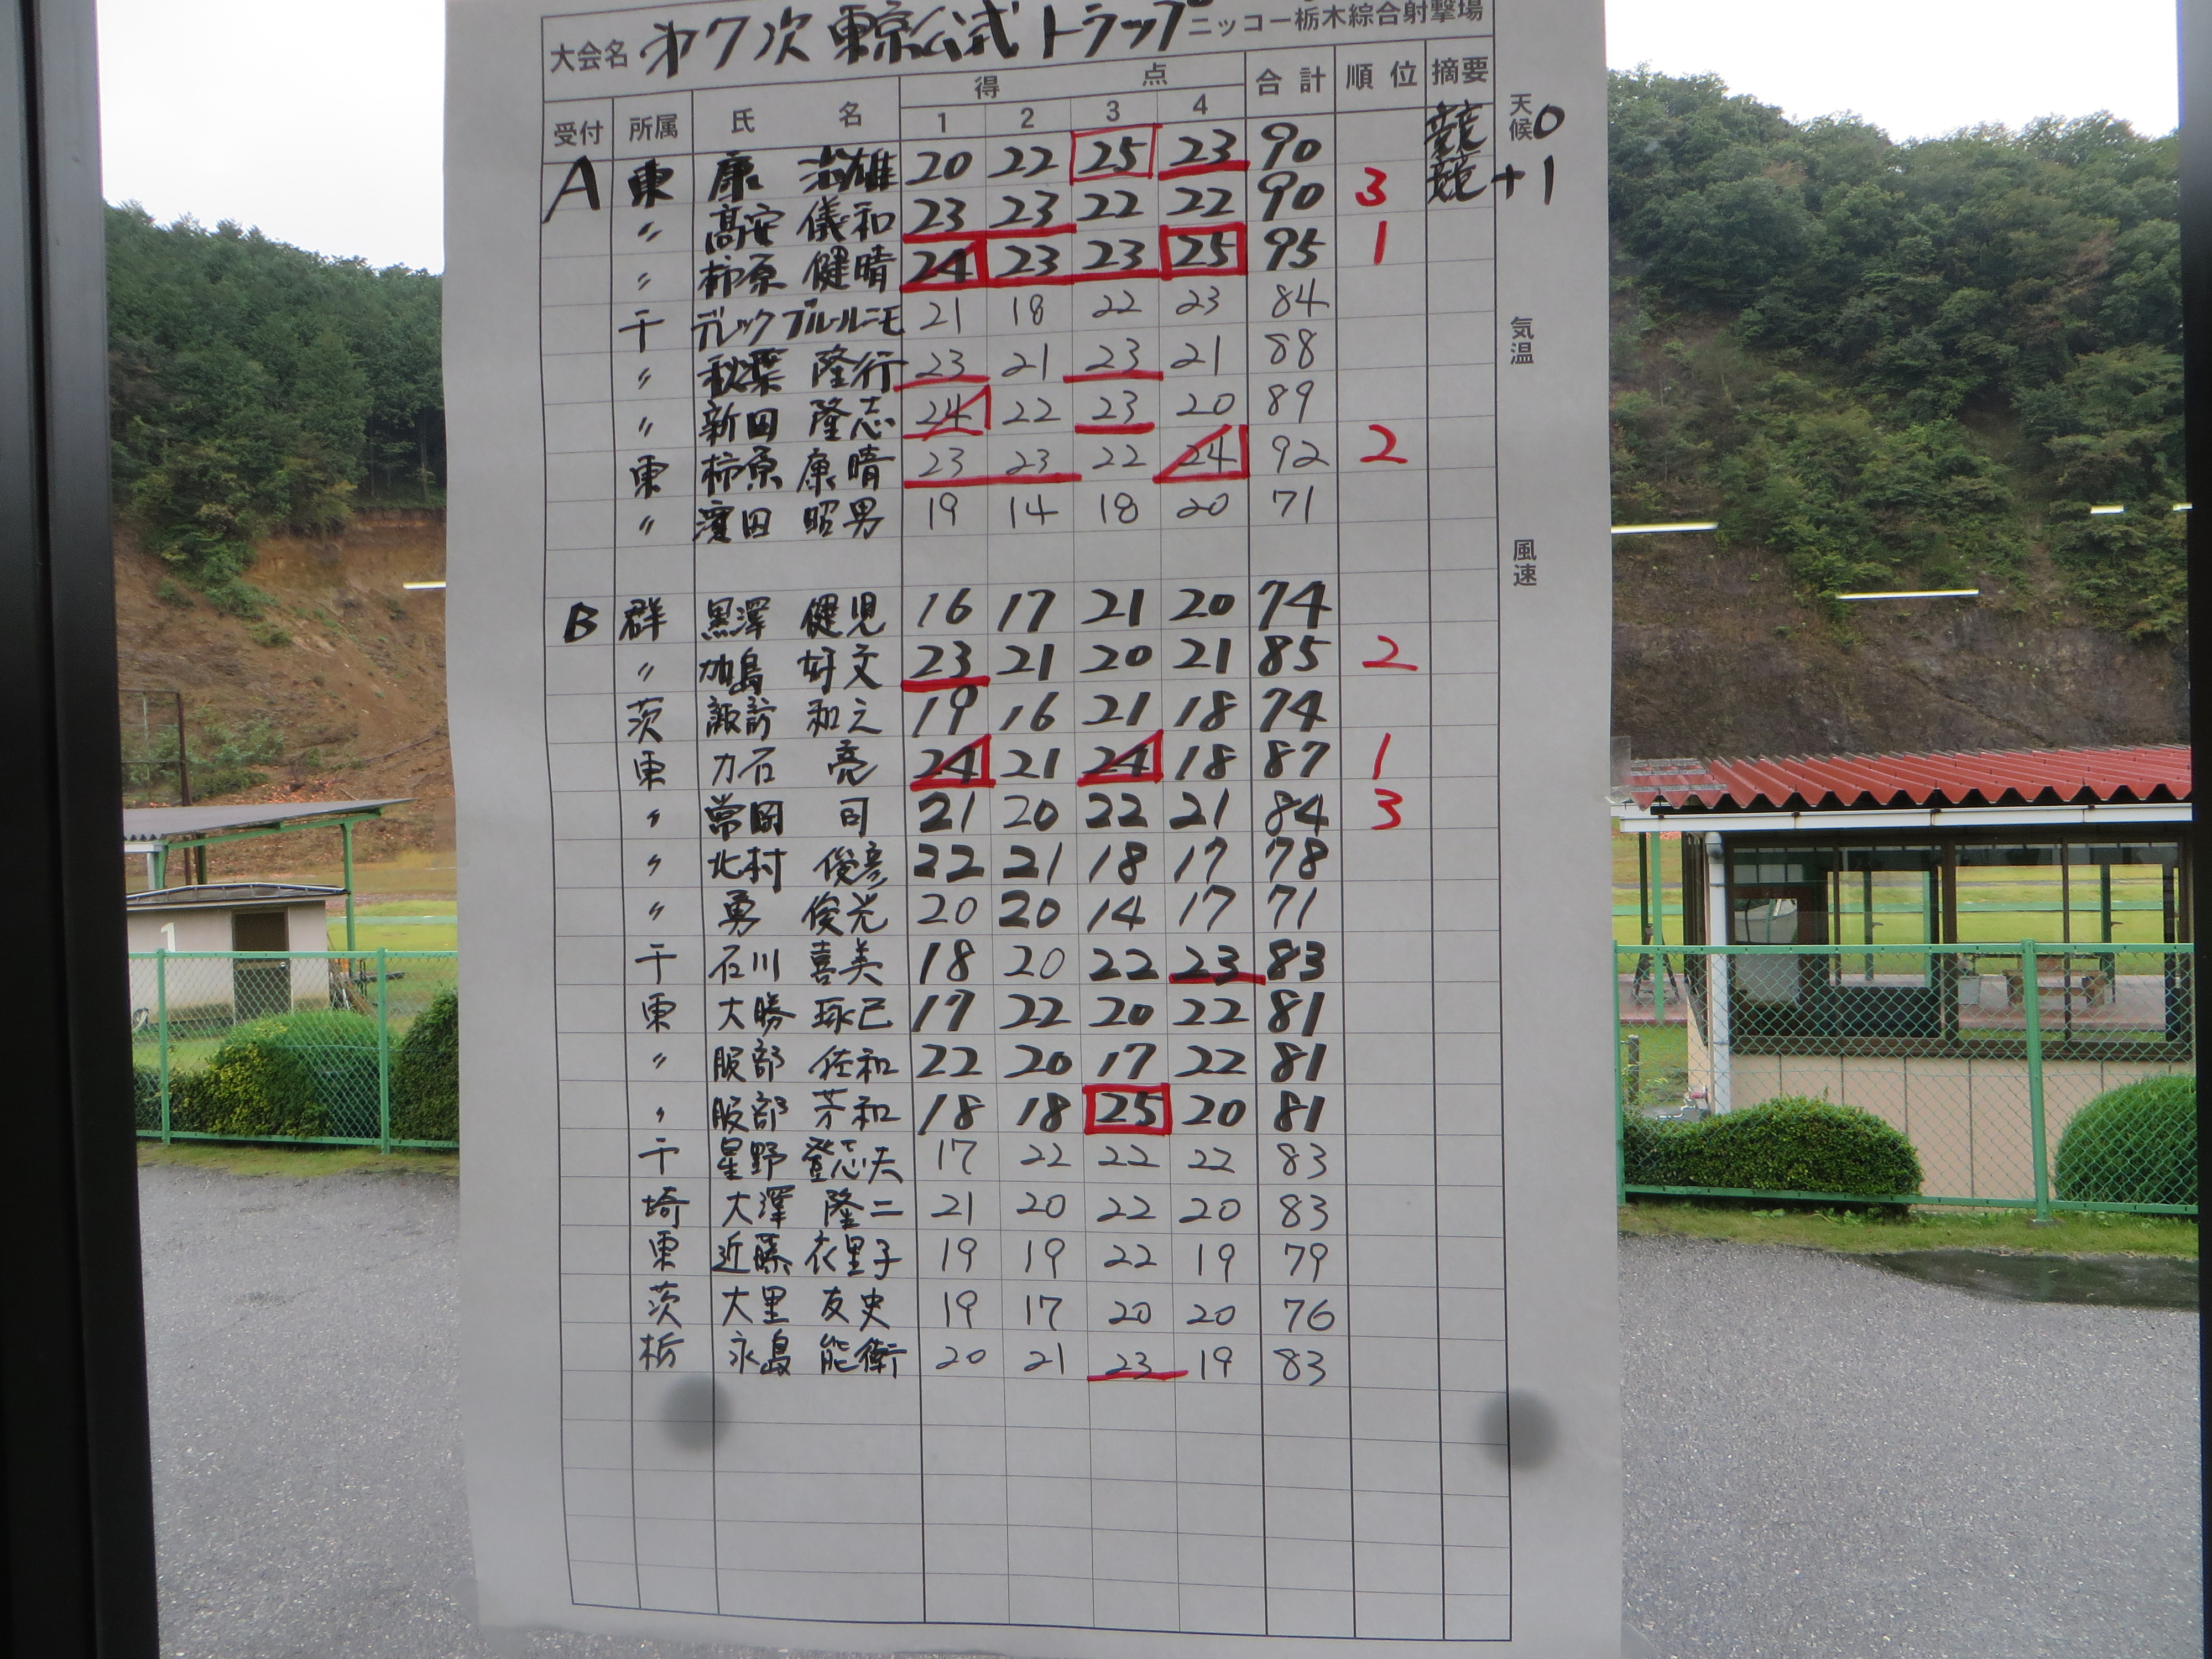 大会名 オ7次 東京公式 トラップ ニッコー栃木綜合射撃場
受付 所属 氏 名 得 点 合計 順位 摘要
1 2 3 4
天候
A 東 康 治雄 20 22 25 23 90 競 0
〃 髙安 儀和 23 23 22 22 90 3 競 +1
〃 柿原 健晴 24 23 23 25 95 1
千 デレック ブルールニモ 21 18 22 23 84
気温
〃 秋葉 隆行 23 21 23 21 88
〃 新田 隆志 24 22 23 20 89
東 柿原 康晴 23 23 22 24 92 2
〃 濱田 昭男 19 14 18 20 71
風速
B 群 黒澤 健児 16 17 21 20 74
〃 加島 好文 23 21 20 21 85 2
茨 諏訪 和之 19 16 21 18 74
東 力石 亮 24 21 24 18 87 1
〃 常岡 司 21 20 22 21 84 3
〃 北村 俊彦 22 21 18 17 78
〃 勇 俊光 20 20 14 17 71
千 石川 喜美 18 20 22 23 83
東 大勝 琢己 17 22 20 22 81
〃 服部 佐和 22 20 17 22 81
〃 服部 芳和 18 18 25 20 81
千 星野 登志夫 17 22 22 22 83
埼 大澤 隆二 21 20 22 20 83
東 近藤 衣里子 19 19 22 19 79
茨 大里 友史 19 17 20 20 76
栃 永島 能衛 20 21 23 19 83